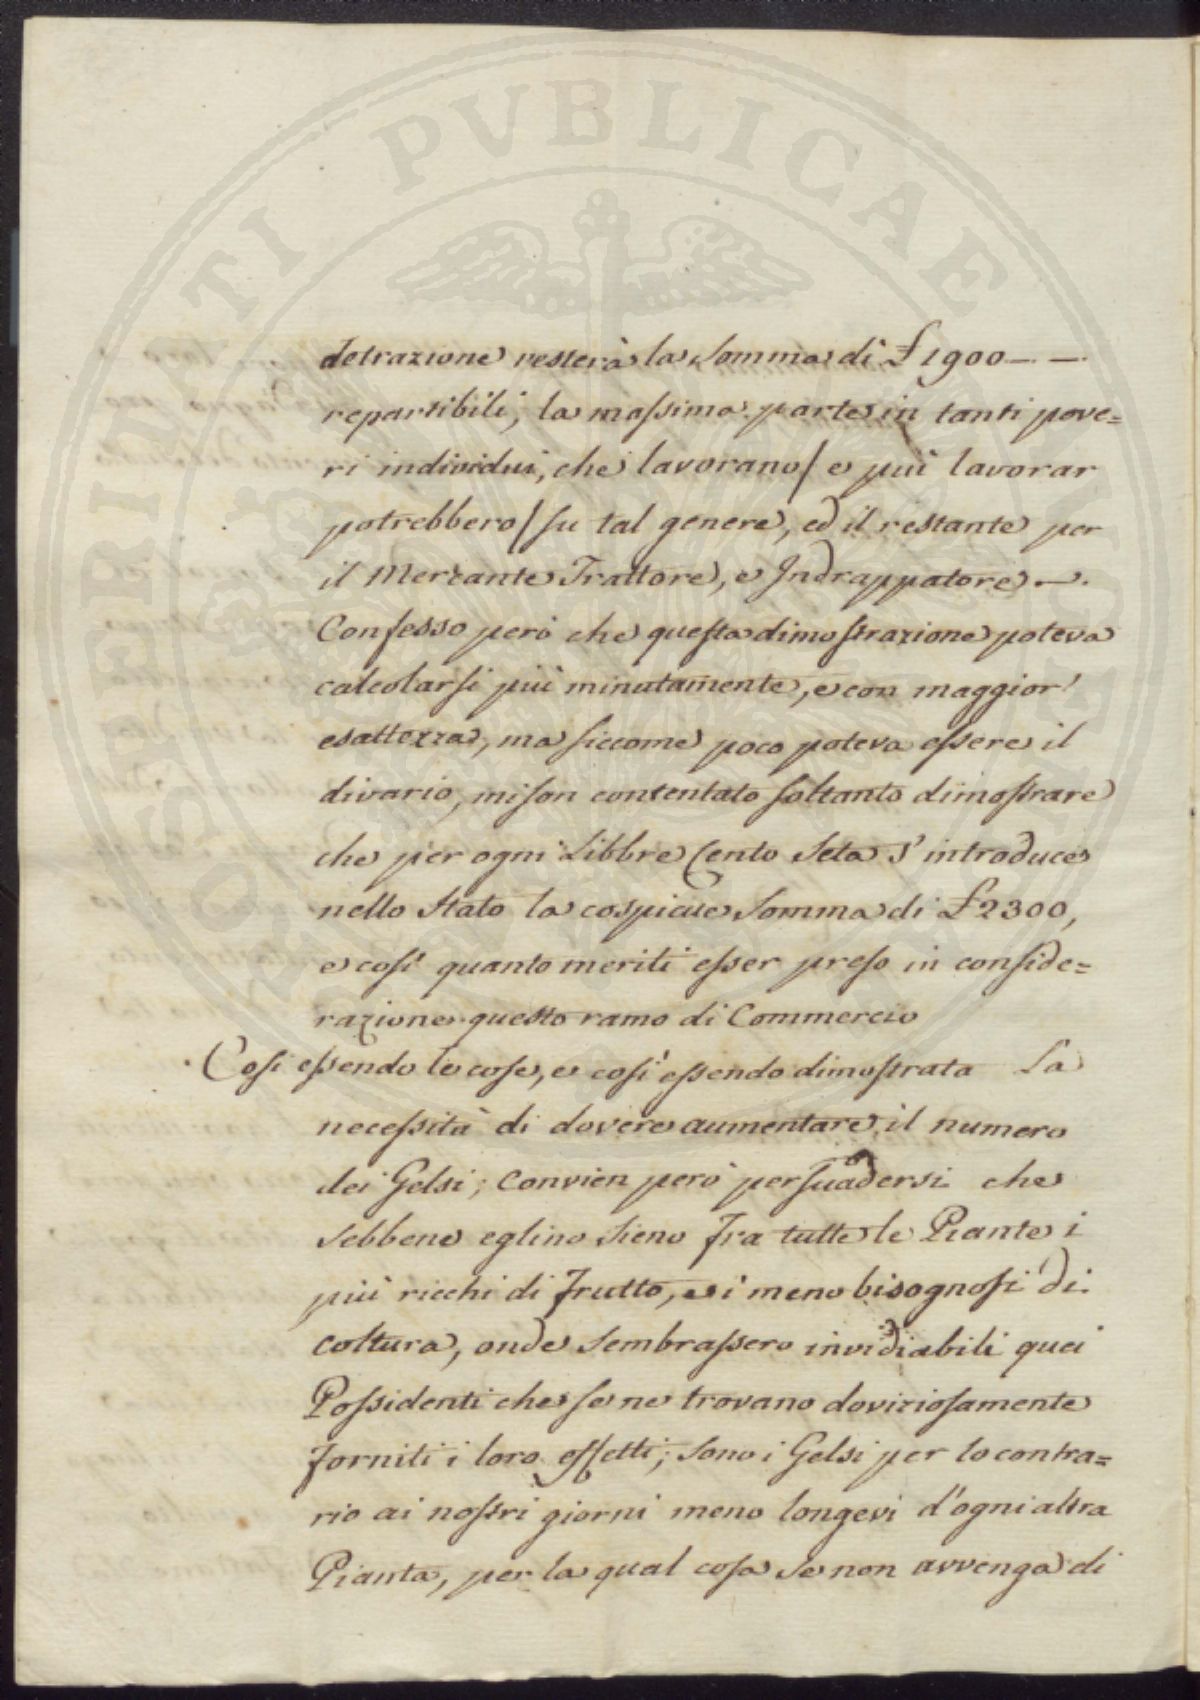 detrazione resterà la Somma di £1900 — —
repartibili, la massima parte in tanti pove=
ri individui, che lavorano / e più lavorar
potrebbero / su tal genere, ed il restante per
il Mercante Trattore, e Indrappatore —.
Confesso però che questa dimostrazione poteva
calcolarsi più minutamente, e con maggior'
esattezza, ma siccome poco poteva essere il
divario, mi son contentato soltanto dimostrare
che per ogni Libbre Cento Seta s'introduce
nello Stato la cospicue Somma di £2300,
e così quanto meriti esser preso in conside=
razione questo ramo di Commercio
Così essendo le cose, e così essendo dimostrata La
necessità di dovere aumentare il numero
dei Gelsi; Convien però persuadersi che
Sebbene eglino Sieno Fra tutte le Piante i
più ricchi di Frutto, e i meno bisognosi di
coltura, onde Sembrassero invidiabili quei
Possidenti che se ne trovano doviziosamente
Forniti i loro effetti; Sono i Gelsi per lo contra=
rio ai nostri giorni meno longevi d'ogni altra
Pianta, per la qual cosa Se non avvenga di
PERITI PVBLICAE